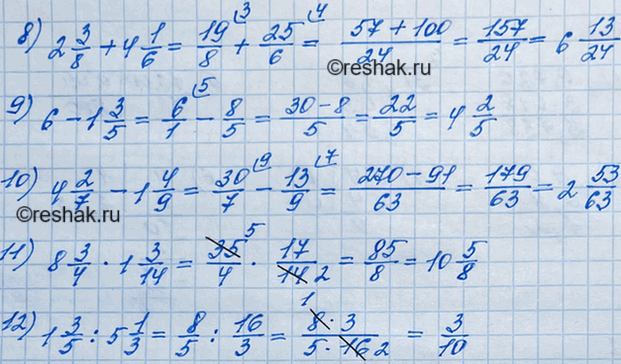 8) 2 3/8 + 4 1/6 = 19/8 ⁽³ + 25/6 ⁽⁴ = (57 + 100)/24 = 157/24 = 6 13/24
©reshak.ru
9) 6 - 1 3/5 = 6/1 ⁽⁵ - 8/5 = (30 - 8)/5 = 22/5 = 4 2/5
10) 4 2/7 - 1 4/9 = 30/7 ⁽⁹ - 13/9 ⁽⁷ = (270 - 91)/63 = 179/63 = 2 53/63
©reshak.ru
11) 8 3/4 · 1 3/14 = 35 5/4 · 17/14 2 = 85/8 = 10 5/8
12) 1 3/5 : 5 1/3 = 8/5 : 16/3 = (1 8 · 3)/(5 · 16 2) = 3/10